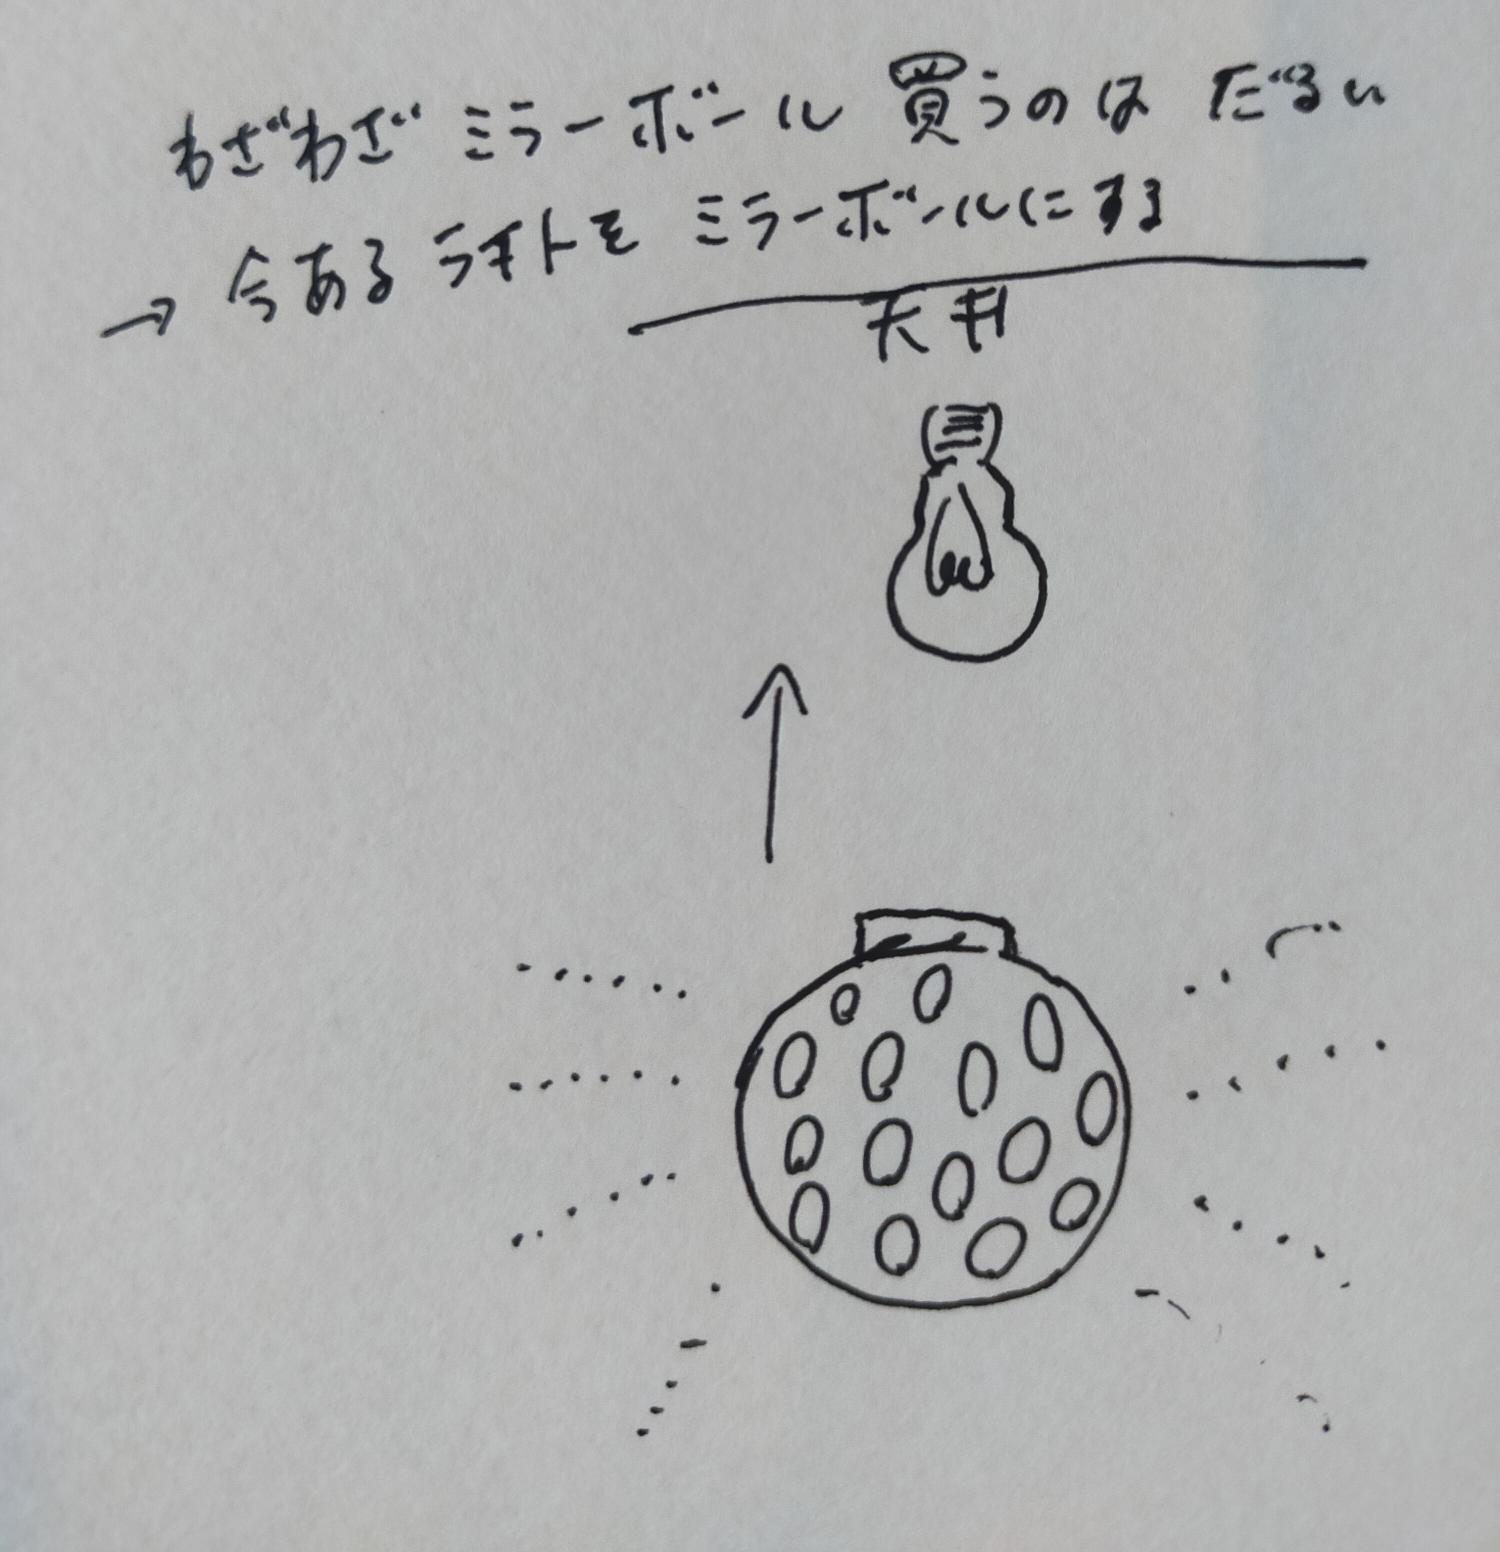 わざわざ ミラーボール 買うのは だるい
→ 今ある ライトを ミラーボールにする
天井